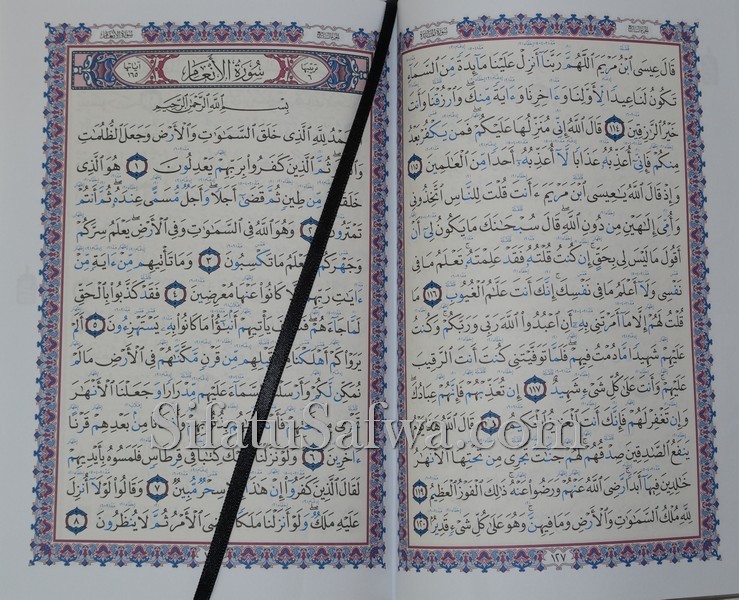 قَالَ عِيسَى ٱبْنُ مَرْيَمَ ٱللَّهُمَّ رَبَّنَآ أَنزِلْ عَلَيْنَا مَآئِدَةً مِّنَ ٱلسَّمَآءِ
تَكُونُ لَنَا عِيدًا لِّأَوَّلِنَا وَءَاخِرِنَا وَءَايَةً مِّنكَ وَٱرْزُقْنَا وَأَنتَ
خَيْرُ ٱلرَّٰزِقِينَ ١١٤ قَالَ ٱللَّهُ إِنِّى مُنَزِّلُهَا عَلَيْكُمْ فَمَن يَكْفُرْ بَعْدُ
مِنكُمْ فَإِنِّىٓ أُعَذِّبُهُۥ عَذَابًا لَّآ أُعَذِّبُهُۥٓ أَحَدًا مِّنَ ٱلْعَٰلَمِينَ ١١٥
وَإِذْ قَالَ ٱللَّهُ يَٰعِيسَى ٱبْنَ مَرْيَمَ ءَأَنتَ قُلْتَ لِلنَّاسِ ٱتَّخِذُونِى
وَأُمِّىَ إِلَٰهَيْنِ مِن دُونِ ٱللَّهِ قَالَ سُبْحَٰنَكَ مَا يَكُونُ لِىٓ أَنْ
أَقُولَ مَا لَيْسَ لِى بِحَقٍّ إِن كُنتُ قُلْتُهُۥ فَقَدْ عَلِمْتَهُۥ تَعْلَمُ مَا فِى
نَفْسِى وَلَآ أَعْلَمُ مَا فِى نَفْسِكَ إِنَّكَ أَنتَ عَلَّٰمُ ٱلْغُيُوبِ ١١٦ مَا
قُلْتُ لَهُمْ إِلَّا مَآ أَمَرْتَنِى بِهِۦٓ أَنِ ٱعْبُدُوا۟ ٱللَّهَ رَبِّى وَرَبَّكُمْ وَكُنتُ
عَلَيْهِمْ شَهِيدًا مَّا دُمْتُ فِيهِمْ فَلَمَّا تَوَفَّيْتَنِى كُنتَ أَنتَ ٱلرَّقِيبَ
عَلَيْهِمْ وَأَنتَ عَلَىٰ كُلِّ شَىْءٍ شَهِيدٌ ١١٧ إِن تُعَذِّبْهُمْ فَإِنَّهُمْ عِبَادُكَ
وَإِن تَغْفِرْ لَهُمْ فَإِنَّكَ أَنتَ ٱلْعَزِيزُ ٱلْحَكِيمُ ١١٨ قَالَ ٱللَّهُ هَٰذَا يَوْمُ
يَنفَعُ ٱلصَّٰدِقِينَ صِدْقُهُمْ لَهُمْ جَنَّٰتٌ تَجْرِى مِن تَحْتِهَا ٱلْأَنْهَٰرُ
خَٰلِدِينَ فِيهَآ أَبَدًا رَّضِىَ ٱللَّهُ عَنْهُمْ وَرَضُوا۟ عَنْهُ ذَٰلِكَ ٱلْفَوْزُ ٱلْعَظِيمُ ١١٩
لِلَّهِ مُلْكُ ٱلسَّمَٰوَٰتِ وَٱلْأَرْضِ وَمَا فِيهِنَّ وَهُوَ عَلَىٰ كُلِّ شَىْءٍ قَدِيرٌۢ ١٢٠
١٢٧
ترتيبها سُورَةُ الأَنْعَام آياتها ١٦٥
بِسْمِ ٱللَّهِ ٱلرَّحْمَٰنِ ٱلرَّحِيمِ
ٱلْحَمْدُ لِلَّهِ ٱلَّذِى خَلَقَ ٱلسَّمَٰوَٰتِ وَٱلْأَرْضَ وَجَعَلَ ٱلظُّلُمَٰتِ
وَٱلنُّورَ ثُمَّ ٱلَّذِينَ كَفَرُوا۟ بِرَبِّهِمْ يَعْدِلُونَ ١ هُوَ ٱلَّذِى
خَلَقَكُم مِّن طِينٍ ثُمَّ قَضَىٰٓ أَجَلًا وَأَجَلٌ مُّسَمًّى عِندَهُۥ ثُمَّ أَنتُمْ
تَمْتَرُونَ ٢ وَهُوَ ٱللَّهُ فِى ٱلسَّمَٰوَٰتِ وَفِى ٱلْأَرْضِ يَعْلَمُ سِرَّكُمْ
وَجَهْرَكُمْ وَيَعْلَمُ مَا تَكْسِبُونَ ٣ وَمَا تَأْتِيهِم مِّنْ ءَايَةٍ مِّنْ
ءَايَٰتِ رَبِّهِمْ إِلَّا كَانُوا۟ عَنْهَا مُعْرِضِينَ ٤ فَقَدْ كَذَّبُوا۟ بِٱلْحَقِّ
لَمَّا جَآءَهُمْ فَسَوْفَ يَأْتِيهِمْ أَنۢبَٰٓؤُا۟ مَا كَانُوا۟ بِهِۦ يَسْتَهْزِءُونَ ٥ أَلَمْ
يَرَوْا۟ كَمْ أَهْلَكْنَا مِن قَبْلِهِم مِّن قَرْنٍ مَّكَّنَّٰهُمْ فِى ٱلْأَرْضِ مَا لَمْ
نُمَكِّن لَّكُمْ وَأَرْسَلْنَا ٱلسَّمَآءَ عَلَيْهِم مِّدْرَارًا وَجَعَلْنَا ٱلْأَنْهَٰرَ
تَجْرِى مِن تَحْتِهِمْ فَأَهْلَكْنَٰهُم بِذُنُوبِهِمْ وَأَنشَأْنَا مِنۢ بَعْدِهِمْ قَرْنًا
ءَاخَرِينَ ٦ وَلَوْ نَزَّلْنَا عَلَيْكَ كِتَٰبًا فِى قِرْطَاسٍ فَلَمَسُوهُ بِأَيْدِيهِمْ
لَقَالَ ٱلَّذِينَ كَفَرُوٓا۟ إِنْ هَٰذَآ إِلَّا سِحْرٌ مُّبِينٌ ٧ وَقَالُوا۟ لَوْلَآ أُنزِلَ
عَلَيْهِ مَلَكٌ وَلَوْ أَنزَلْنَا مَلَكًا لَّقُضِىَ ٱلْأَمْرُ ثُمَّ لَا يُنظَرُونَ ٨
SilatuSafwa.com